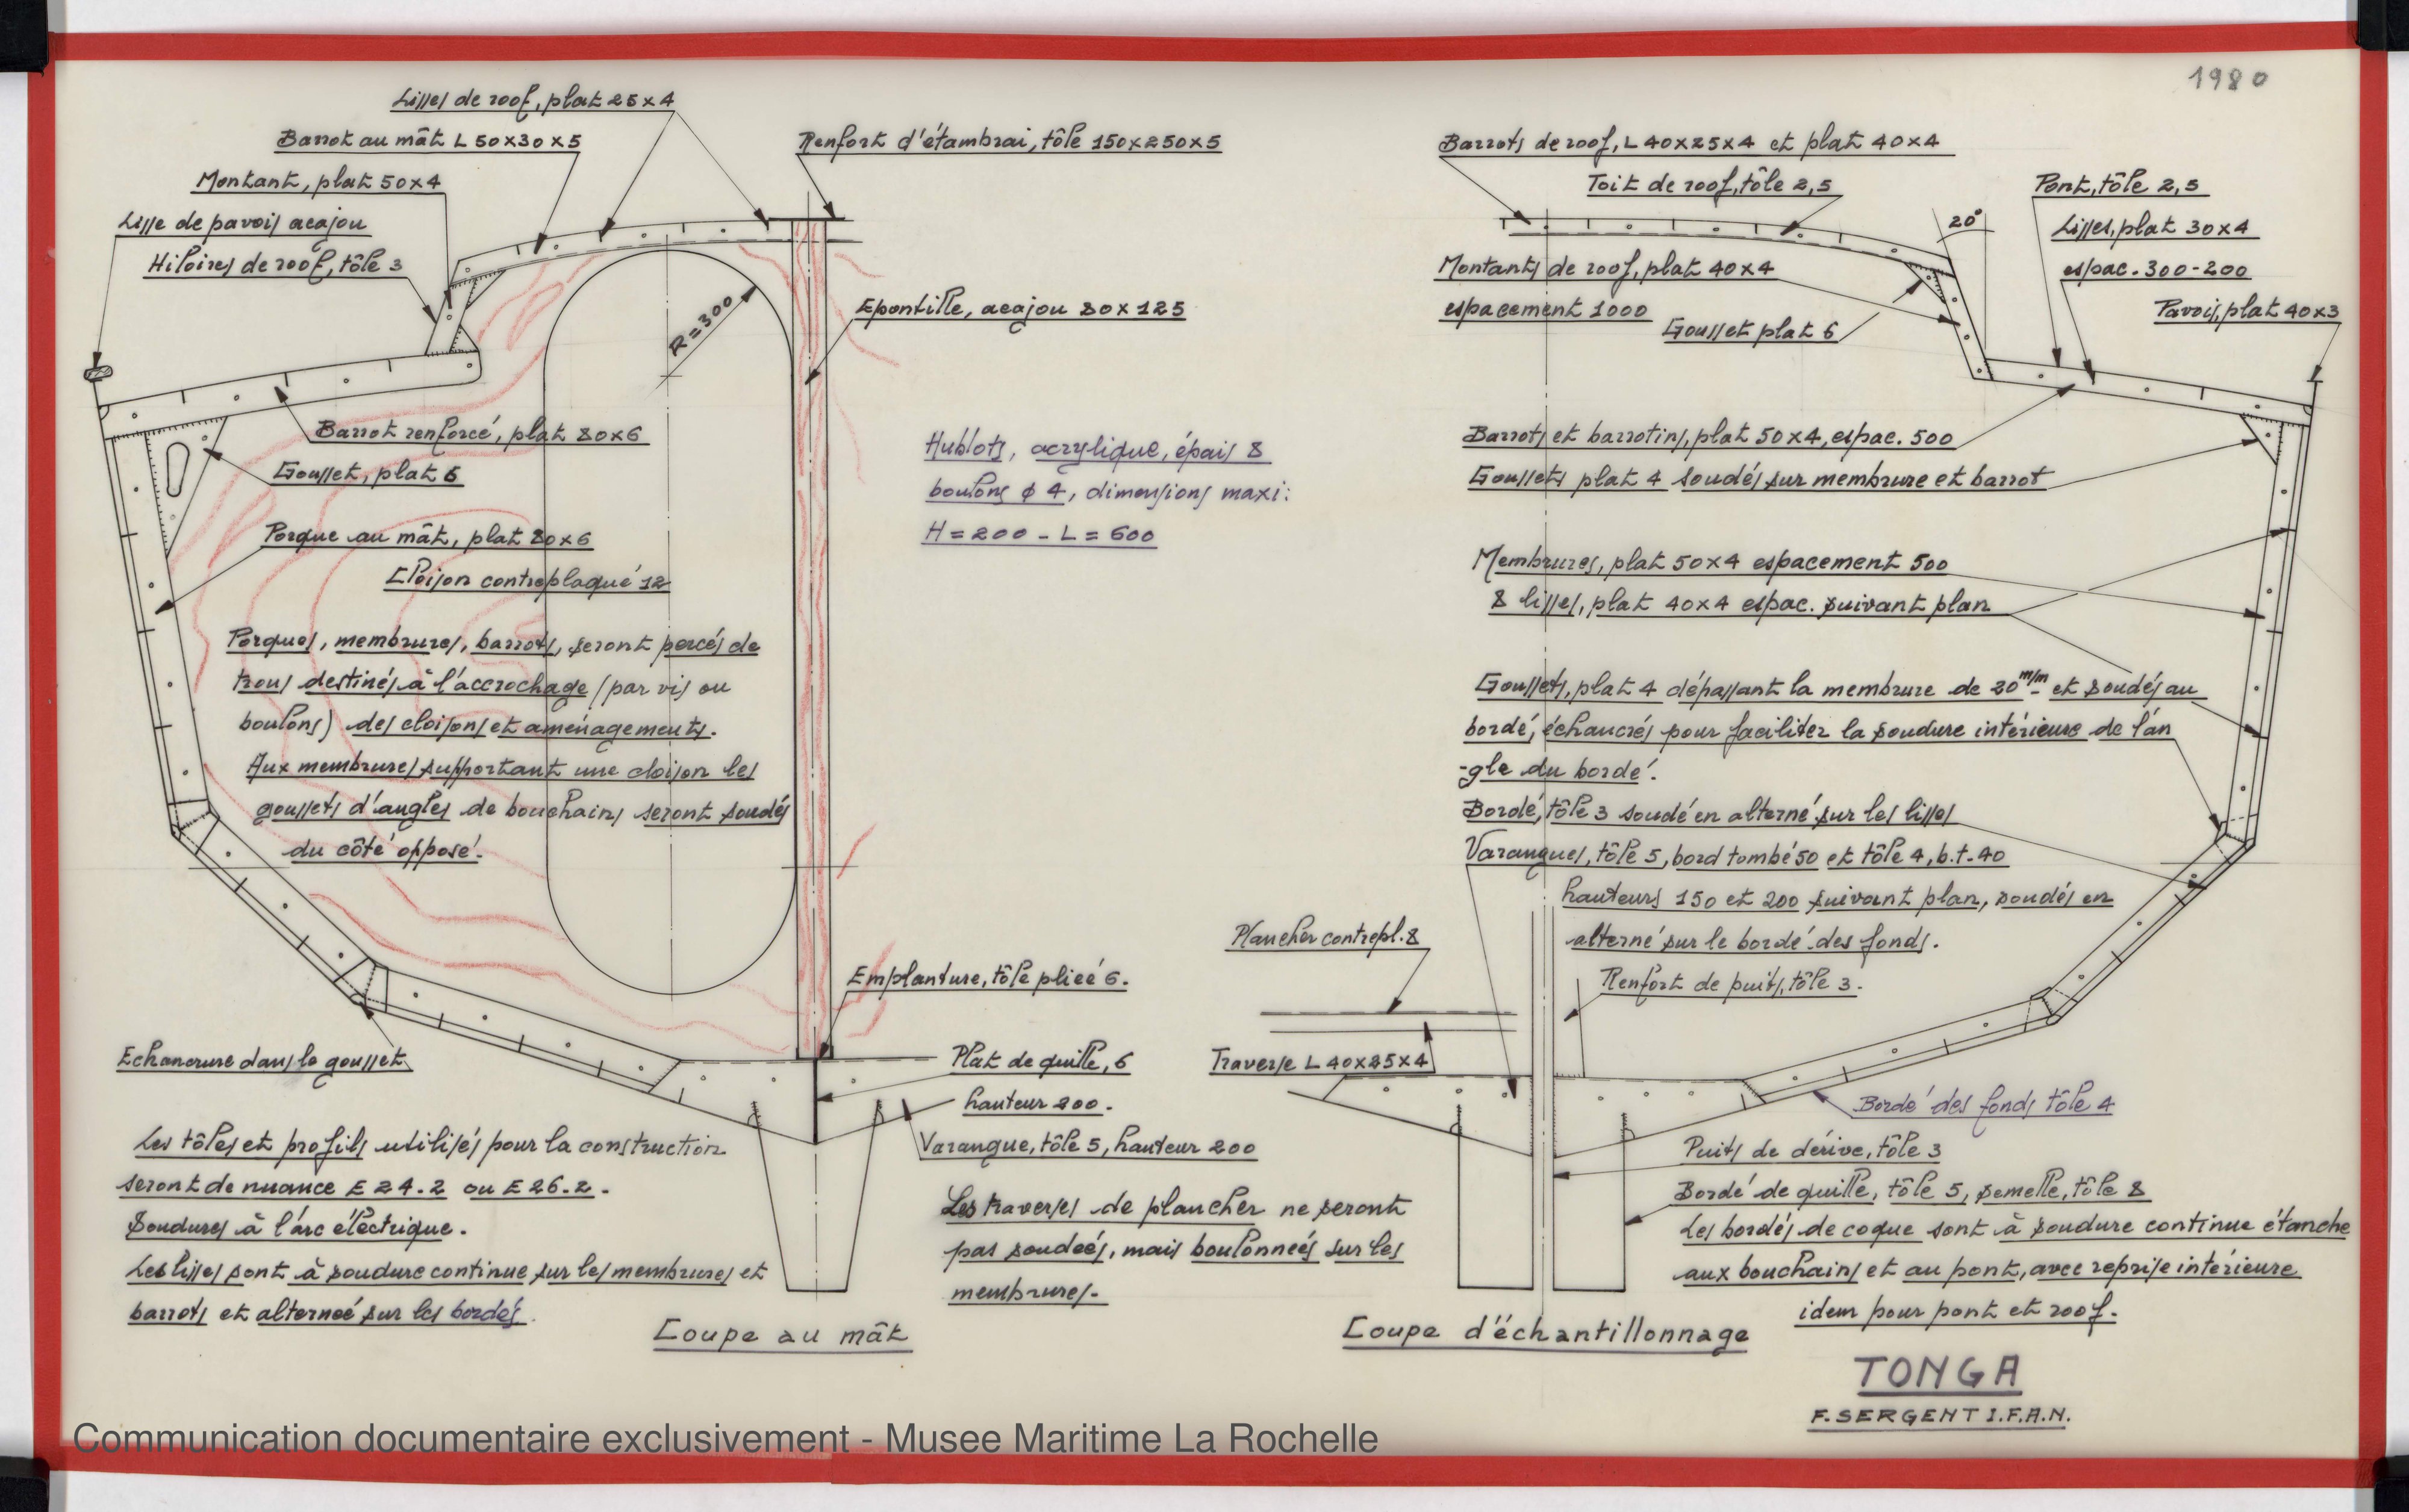 1980
Lisses de roof, plat 25x4
Barrot au mât L 50x30x5
Montant, plat 50x4
Lisse de pavois acajou
Hiloires de roof, tôle 3
Renfort d'étambrai, tôle 150x250x5
R=300
Epontille, acajou 80x125
Barrot renforcé, plat 80x6
Gousset, plat 6
Porque au mât, plat 80x6
Cloison contreplaqué 12
Porques, membrures, barrots, seront percés de
trous destinés à l'accrochage (par vis ou
boulons) des cloisons et aménagements.
Aux membrures supportant une cloison les
goussets d'angles de bouchains seront soudés
du côté opposé.
Hublots, acrylique, épais 8
boulons ϕ 4, dimensions maxi:
H = 200 - L = 600
Emplanture, tôle pliée 6.
Echancrure dans le gousset
Plat de quille, 6
hauteur 200.
Varangue, tôle 5, hauteur 200
Les tôles et profils utilisés pour la construction
seront de nuance E 24.2 ou E 26.2.
Soudures à l'arc électrique.
Les lisses sont à soudure continue sur les membrures et
barrots et alterneé sur les bordés.
Les traverses de plancher ne seront
pas soudeés, mais boulonneés sur les
membrures.
Coupe au mât
Barrots de roof, L 40x25x4 et plat 40x4
Toit de roof, tôle 2,5
20°
Pont, tôle 2,5
Lisses, plat 30x4
espac. 300-200
Pavois, plat 40x3
Montants de roof, plat 40x4
espacement 1000
Gousset plat 6
Barrots et barrotins, plat 50x4, espac. 500
Goussets plat 4 soudés sur membrure et barrot
Membrures, plat 50x4 espacement 500
8 lisses, plat 40x4 espac. suivant plan
Goussets, plat 4 dépassant la membrure de 20 m/m et soudés au
bordé, échancrés pour faciliter la soudure intérieure de l'an
-gle du bordé.
Bordé, tôle 3 soudé en alterné sur les lisses
Varangues, tôle 5, bord tombé 50 et tôle 4, b.t. 40
hauteurs 150 et 200 suivant plan, soudés en
alterné sur le bordé des fonds.
Plancher contrepl. 8
Renfort de puits, tôle 3.
Traverse L 40x25x4
Bordé des fonds tôle 4
Puits de dérive, tôle 3
Bordé de quille, tôle 5, semelle, tôle 8
Les bordés de coque sont à soudure continue étanche
aux bouchains et au pont, avec reprise intérieure
idem pour pont et roof.
Coupe d'échantillonnage
TONGA
F. SERGENT I.F.A.N.
Communication documentaire exclusivement - Musee Maritime La Rochelle